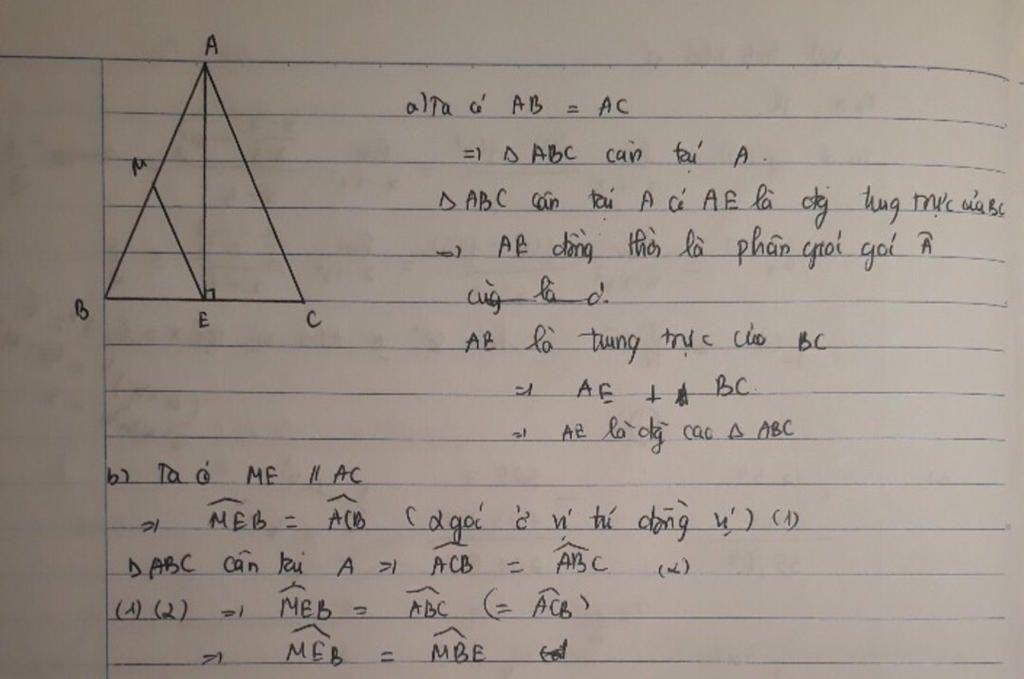 A
M
B
E
C
a) Ta có AB = AC
=> Δ ABC cân tại A.
Δ ABC cân tại A có AE là đg trung trực của BC
=> AE đồng thời là phân giác góc Â
cũg là đ.
AE là trung trực của BC
=> AE ⊥ BC.
=> AE là đg cao Δ ABC
b) Ta có ME // AC
=> MEB = ACB (2 góc ở vị trí đồng vị) (1)
Δ ABC cân tại A => ACB = ABC (2)
(1) (2) => MEB = ABC (= ACB)
=> MEB = MBE